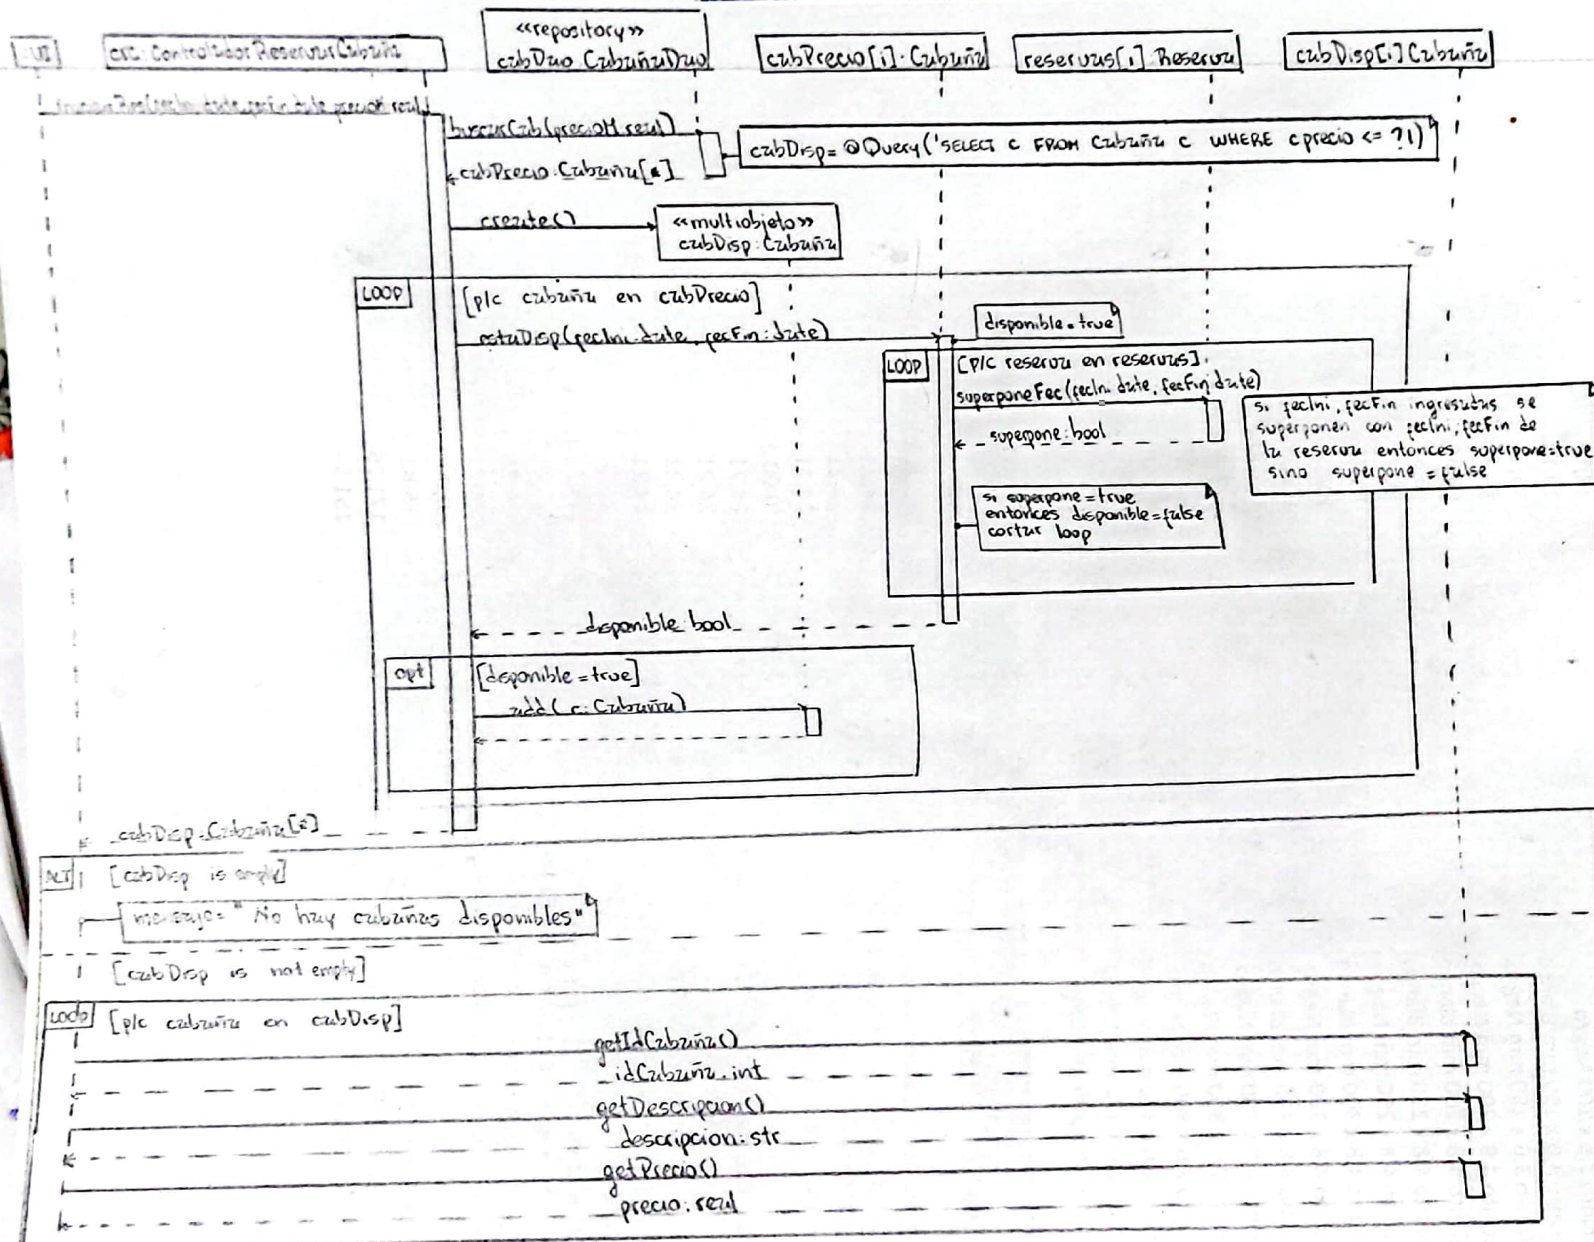 : UI
crc: ControladorReservarCabaña
«repository»
cabDao: CabañaDao
cabPrecio[i]: Cabaña
reservas[i]: Reserva
cabDisp[i]: Cabaña
(fecIni: date, fecFin: date, precioM: real)
buscarCab(precioM: real)
cabDisp= @Query('SELECT c FROM Cabaña c WHERE c.precio <= ?1)
cabPrecio: Cabaña[*]
create()
«multiobjeto»
cabDisp: Cabaña
LOOP
[p/c cabaña en cabPrecio]
estaDisp(fecIni: date, fecFin: date)
disponible = true
LOOP
[p/c reserva en reservas]
superponeFec(fecIni: date, fecFin: date)
superpone: bool
si fecIni, fecFin ingresadas se
superponen con fecIni, fecFin de
la reserva entonces superpone=true
sino superpone = false
si superpone = true
entonces disponible=false
cortar loop
disponible: bool
opt
[disponible = true]
add(c: Cabaña)
cabDisp: Cabaña[*]
ALT
[cabDisp is empty]
mensaje= "No hay cabañas disponibles"
[cabDisp is not empty]
LOOP
[p/c cabaña en cabDisp]
getIdCabaña()
idCabaña: int
getDescripcion()
descripcion: str
getPrecio()
precio: real